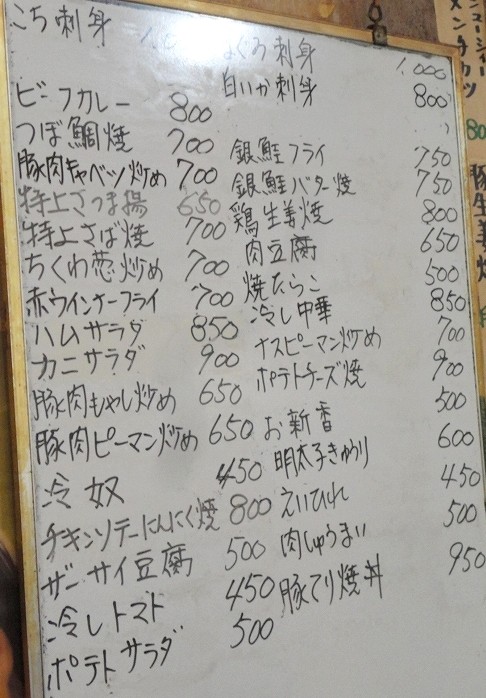 こち刺身
ビーフカレー 800
つぼ鯛焼 700
豚肉キャベツ炒め 700
特上さつま揚 650
特上さば焼 700
ちくわ葱炒め 700
赤ウインナーフライ 700
ハムサラダ 850
カニサラダ 900
豚肉もやし炒め 650
豚肉ピーマン炒め 650
冷奴 450
チキンソテーにんにく焼 800
ザーサイ豆腐 500
冷しトマト 450
ポテトサラダ 500
まぐろ刺身 1,000
白いか刺身 800
銀鮭フライ 750
銀鮭バター焼 750
鶏生姜焼 800
肉豆腐 650
焼たらこ 500
冷し中華 850
ナスピーマン炒め 700
ポテトチーズ焼 900
お新香 500
明太子きゅうり 600
えいひれ 450
肉しゅうまい 500
豚てり焼丼 950
メンチカツ
豚生姜焼